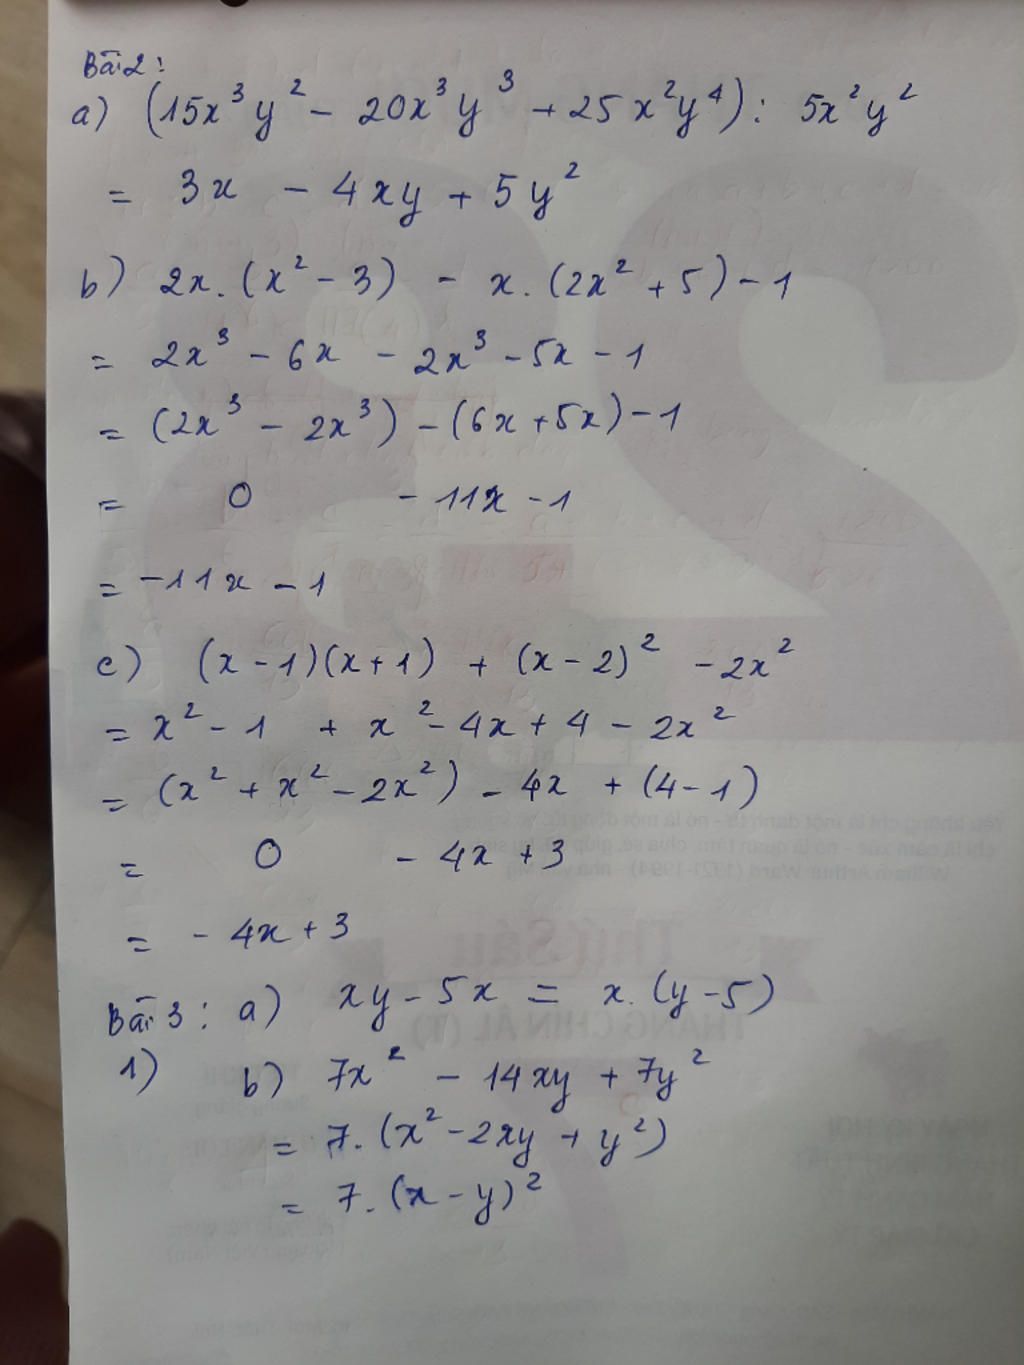 Bài 2:
a) (15x³y² - 20x³y³ + 25x²y⁴) : 5x²y²
= 3x - 4xy + 5y²
b) 2x.(x² - 3) - x.(2x² + 5) - 1
= 2x³ - 6x - 2x³ - 5x - 1
= (2x³ - 2x³) - (6x + 5x) - 1
= 0 - 11x - 1
= -11x - 1
c) (x - 1)(x + 1) + (x - 2)² - 2x²
= x² - 1 + x² - 4x + 4 - 2x²
= (x² + x² - 2x²) - 4x + (4 - 1)
= 0 - 4x + 3
= - 4x + 3
Bài 3: a) xy - 5x = x.(y - 5)
1) b) 7x² - 14xy + 7y²
= 7.(x² - 2xy + y²)
= 7.(x - y)²
23
Thứ Sáu
THÁNG CHÍN ÂL (T)
7